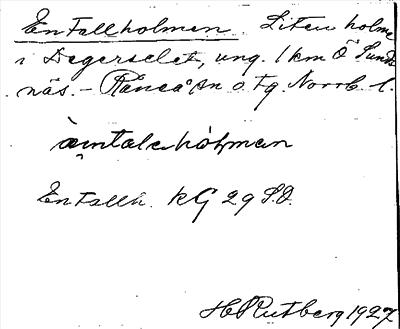 Entallholmen. Liten holme
i Degerselet, ung. 1 km Ö Sund-
näs. – Råneå sn o tg. Norrb. l.
Entallh. kG 29 S.O.
H Rutberg 1927